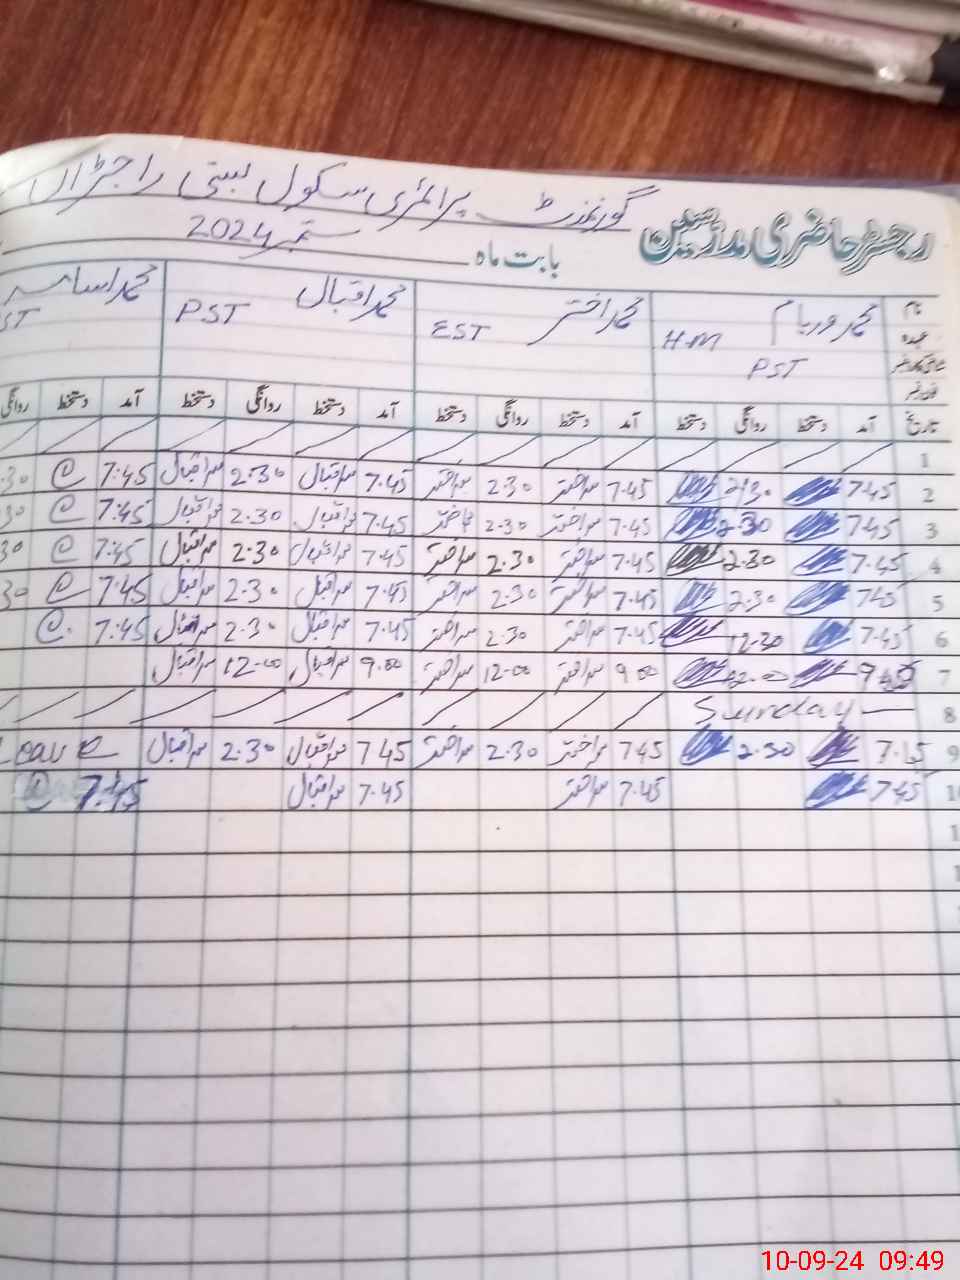 گورنمنٹ پرائمری سکول بستی راجڑاں
رجسٹر حاضری مدرسین
بابت ماہ ستمبر 2024
نام محمد وریام محمد اختر محمد اقبال محمد اسامہ
عہدہ H.M EST PST ST
PST
تاریخ آمد دستخط روانگی دستخط آمد دستخط روانگی دستخط آمد دستخط روانگی دستخط آمد دستخط روانگی
1
2 7.45 2.30 7.45 محمد اختر 2.30 محمد اختر 7.45 محمد اقبال 2.30 محمد اقبال 7.45 30
3 7.45 2.30 7.45 محمد اختر 2.30 محمد اختر 7.45 محمد اقبال 2.30 محمد اقبال 7.45 30
4 7.45 2.30 7.45 محمد اختر 2.30 محمد اختر 7.45 محمد اقبال 2.30 محمد اقبال 7.45 30
5 745 2.30 7.45 محمد اختر 2.30 محمد اختر 7.45 محمد اقبال 2.30 محمد اقبال 7.45 30
6 7.45 12.30 7.45 محمد اختر 2.30 محمد اختر 7.45 محمد اقبال 2.30 محمد اقبال 7.45
7 12.00 9.00 محمد اختر 12-00 محمد اختر 9.00 محمد اقبال 12-00 محمد اقبال
8 Sunday
9 2.30 745 محمد اختر 2.30 محمد اختر 745 محمد اقبال 2.30 محمد اقبال Leave
745 7.45 محمد اختر 7.45 محمد اقبال 7.45
10-09-24 09:49